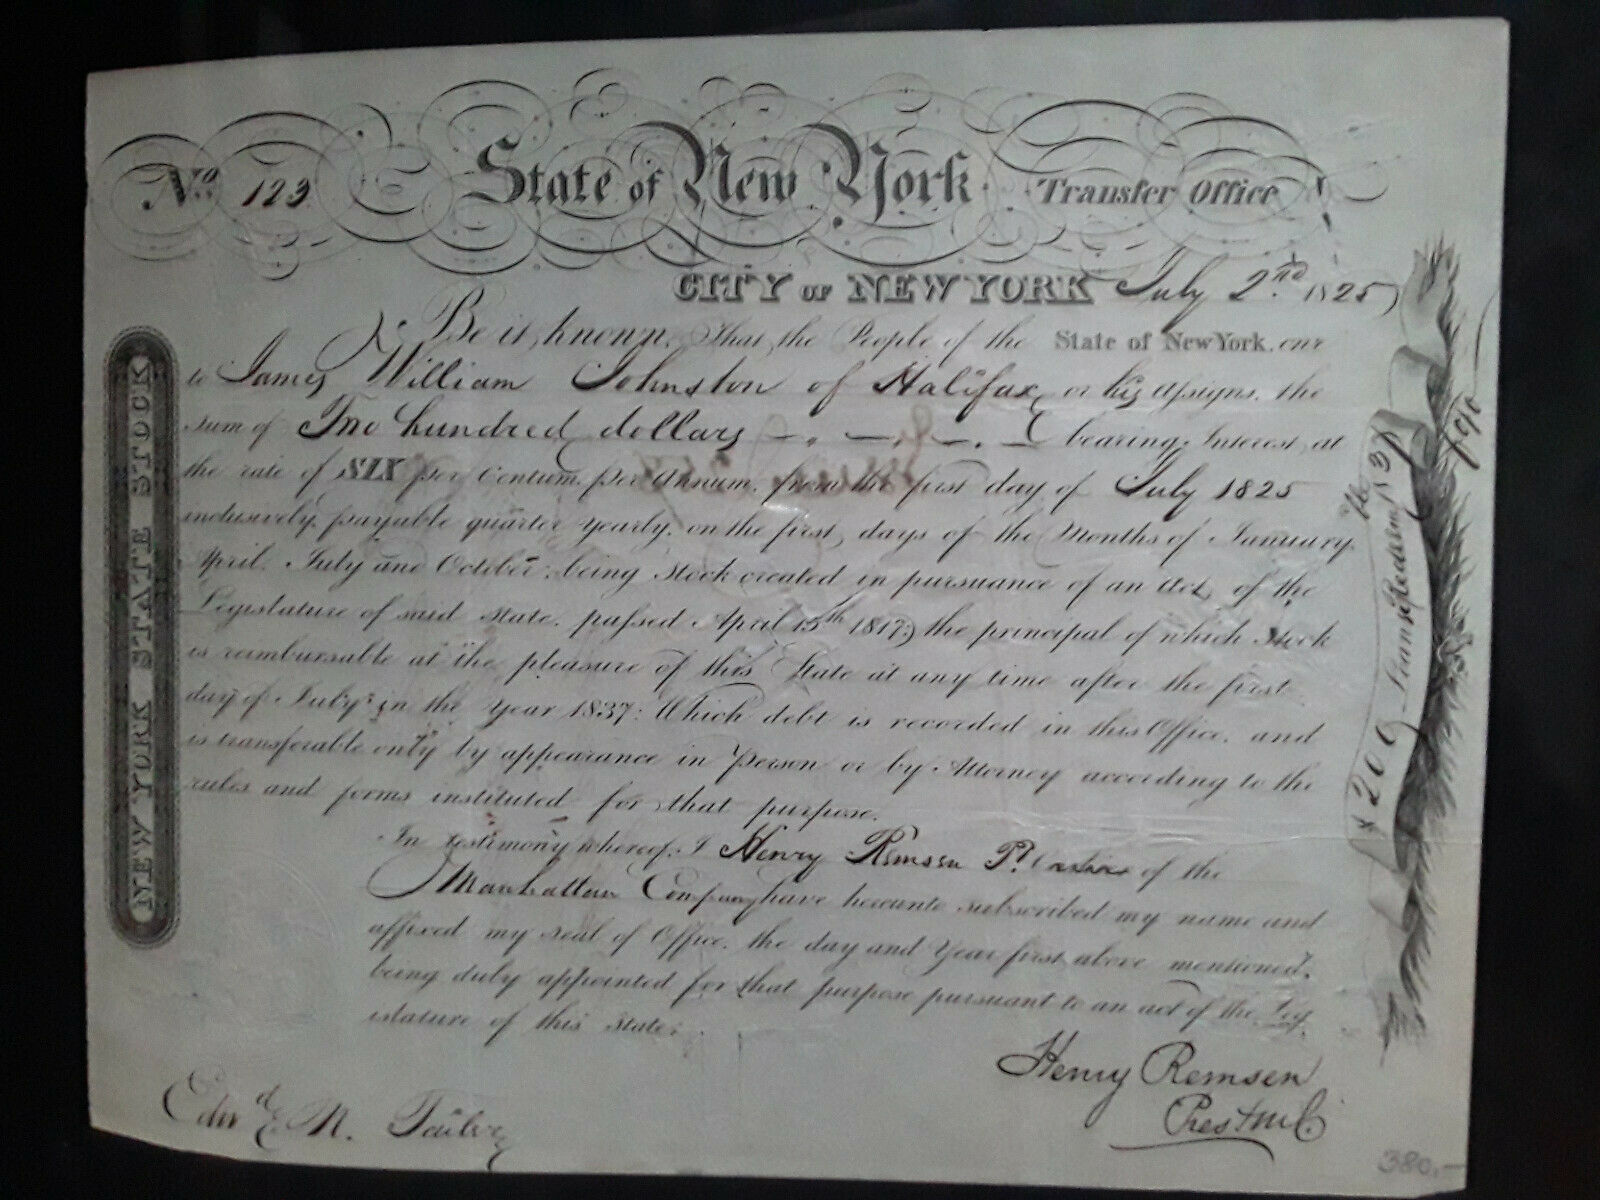 No. 123 State of New York. Transfer Office
CITY OF NEW YORK July 2nd. 1825
Be it known, That the People of the State of New York, owe
to James William Johnston of Halifax, or his Assigns, the
sum of Two hundred dollars bearing Interest, at
the rate of SIX per Centum, per Annum, from the first day of July 1825
inclusively, payable quarter yearly, on the first, days of the Months of January,
April, July and October; being Stock created in pursuance of an Act, of the
Legislature of said State, passed April 15th 1817; the principal of which Stock
is reimbursable at the pleasure of this State at any time after the first
day of July in the Year 1837: Which debt is recorded in this Office, and
is transferable only by appearance in Person or by Attorney according to the
rules and forms instituted for that purpose.
In testimony whereof, I Henry Remsen Pt. of the
Manhattan Company have hereunto subscribed my name and
affixed my seal of Office, the day and Year first above mentioned,
being duly appointed for that purpose pursuant to an act of the Leg
islature of this State.
Henry Remsen
Prest M C.
Edwd. N.
NEW YORK STATE STOCK
$200
380.-